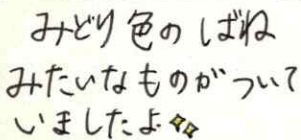 みどり色のばね
みたいなものがついて
いましたよ